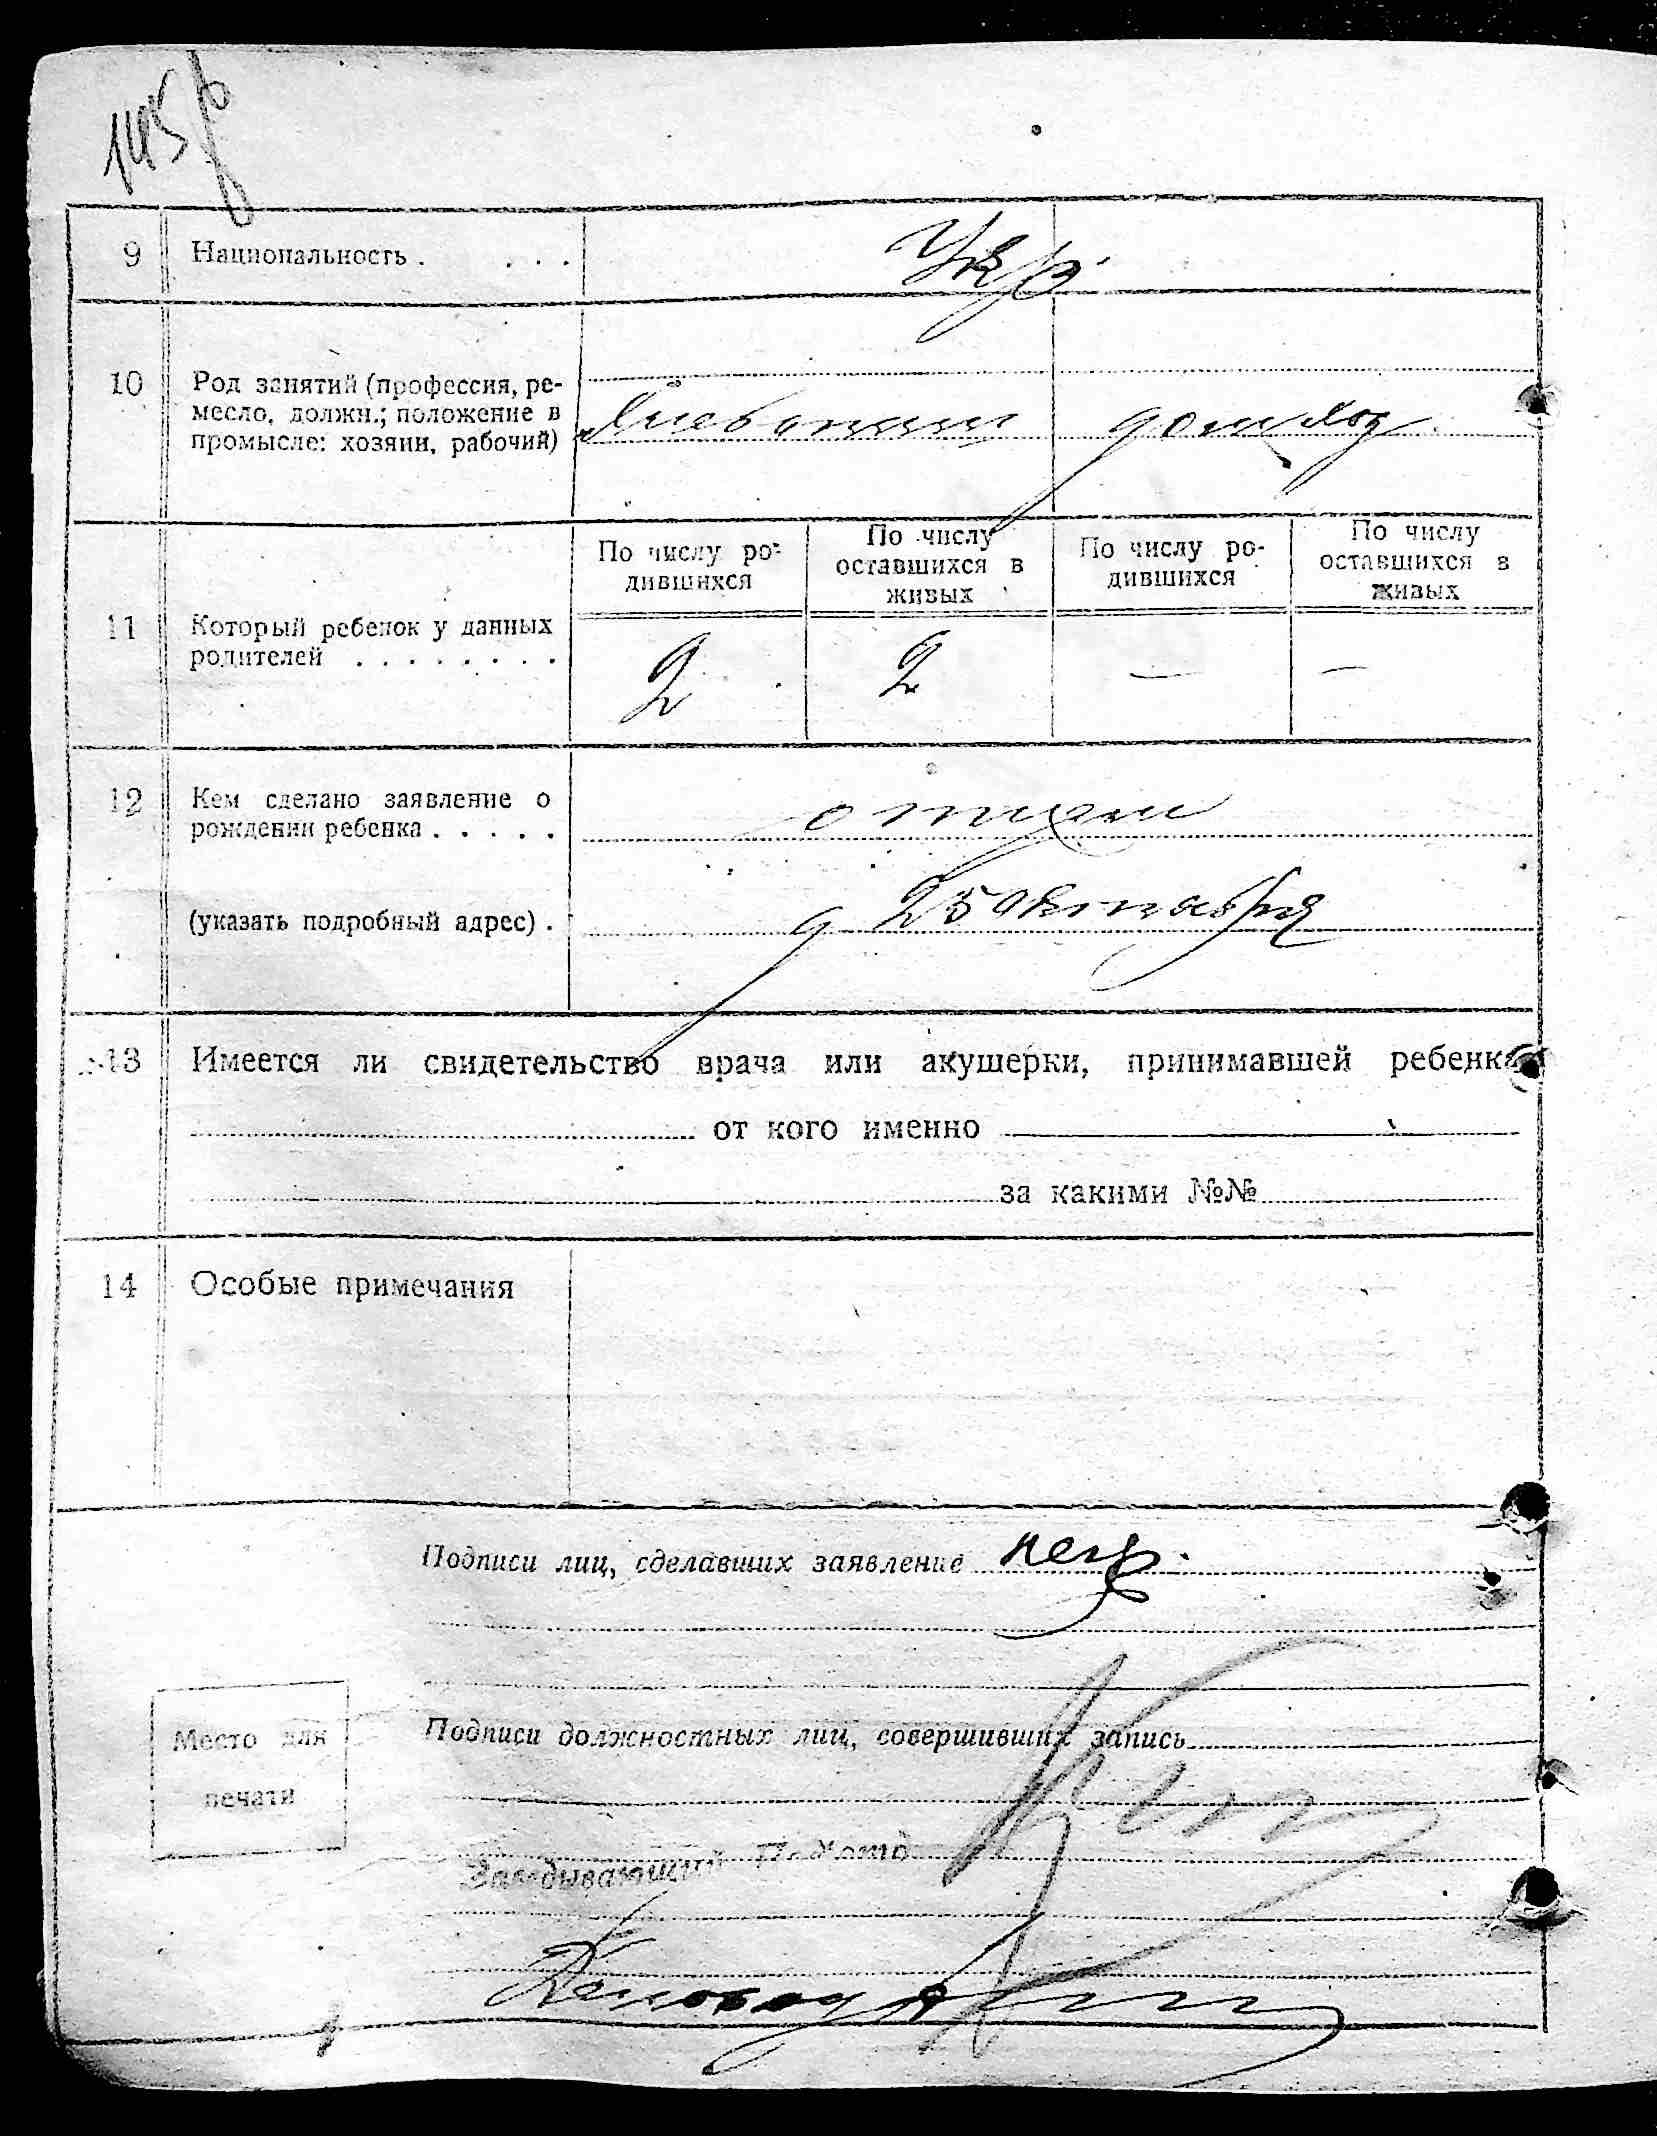 145
9 Национальность . . . . Укр.
10 Род занятий (профессия, ре-
месло, должн.; положение в
промысле: хозяин, рабочий) Хлебопаш домхоз
11 Который ребенок у данных
родителей . . . . . . . .
По числу ро-
дившихся
По числу
оставшихся в
живых
По числу ро-
дившихся
По числу
оставшихся в
живых
2 2 — —
12 Кем сделано заявление о
рождении ребенка . . . . . отцем
(указать подробный адрес) . д 25 Октября
13 Имеется ли свидетельство врача или акушерки, принимавшей ребенка
от кого именно
за какими №№
14 Особые примечания
Подписи лиц, сделавших заявление негр.
Подписи должностных лиц, совершивших запись
Место для
печати
Заведывающий
Деловод